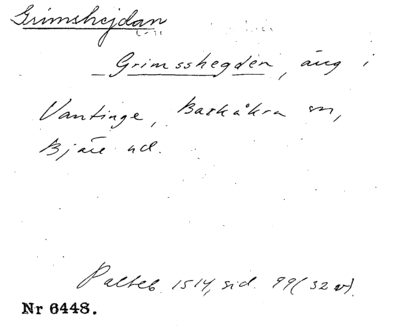 Grimshejdan
Grimsshegden, äng i
Vantinge, Baskåkra sn,
Bjäre hd.
Palteb. 1514, sid. 99 (52 v).
Nr 6448.